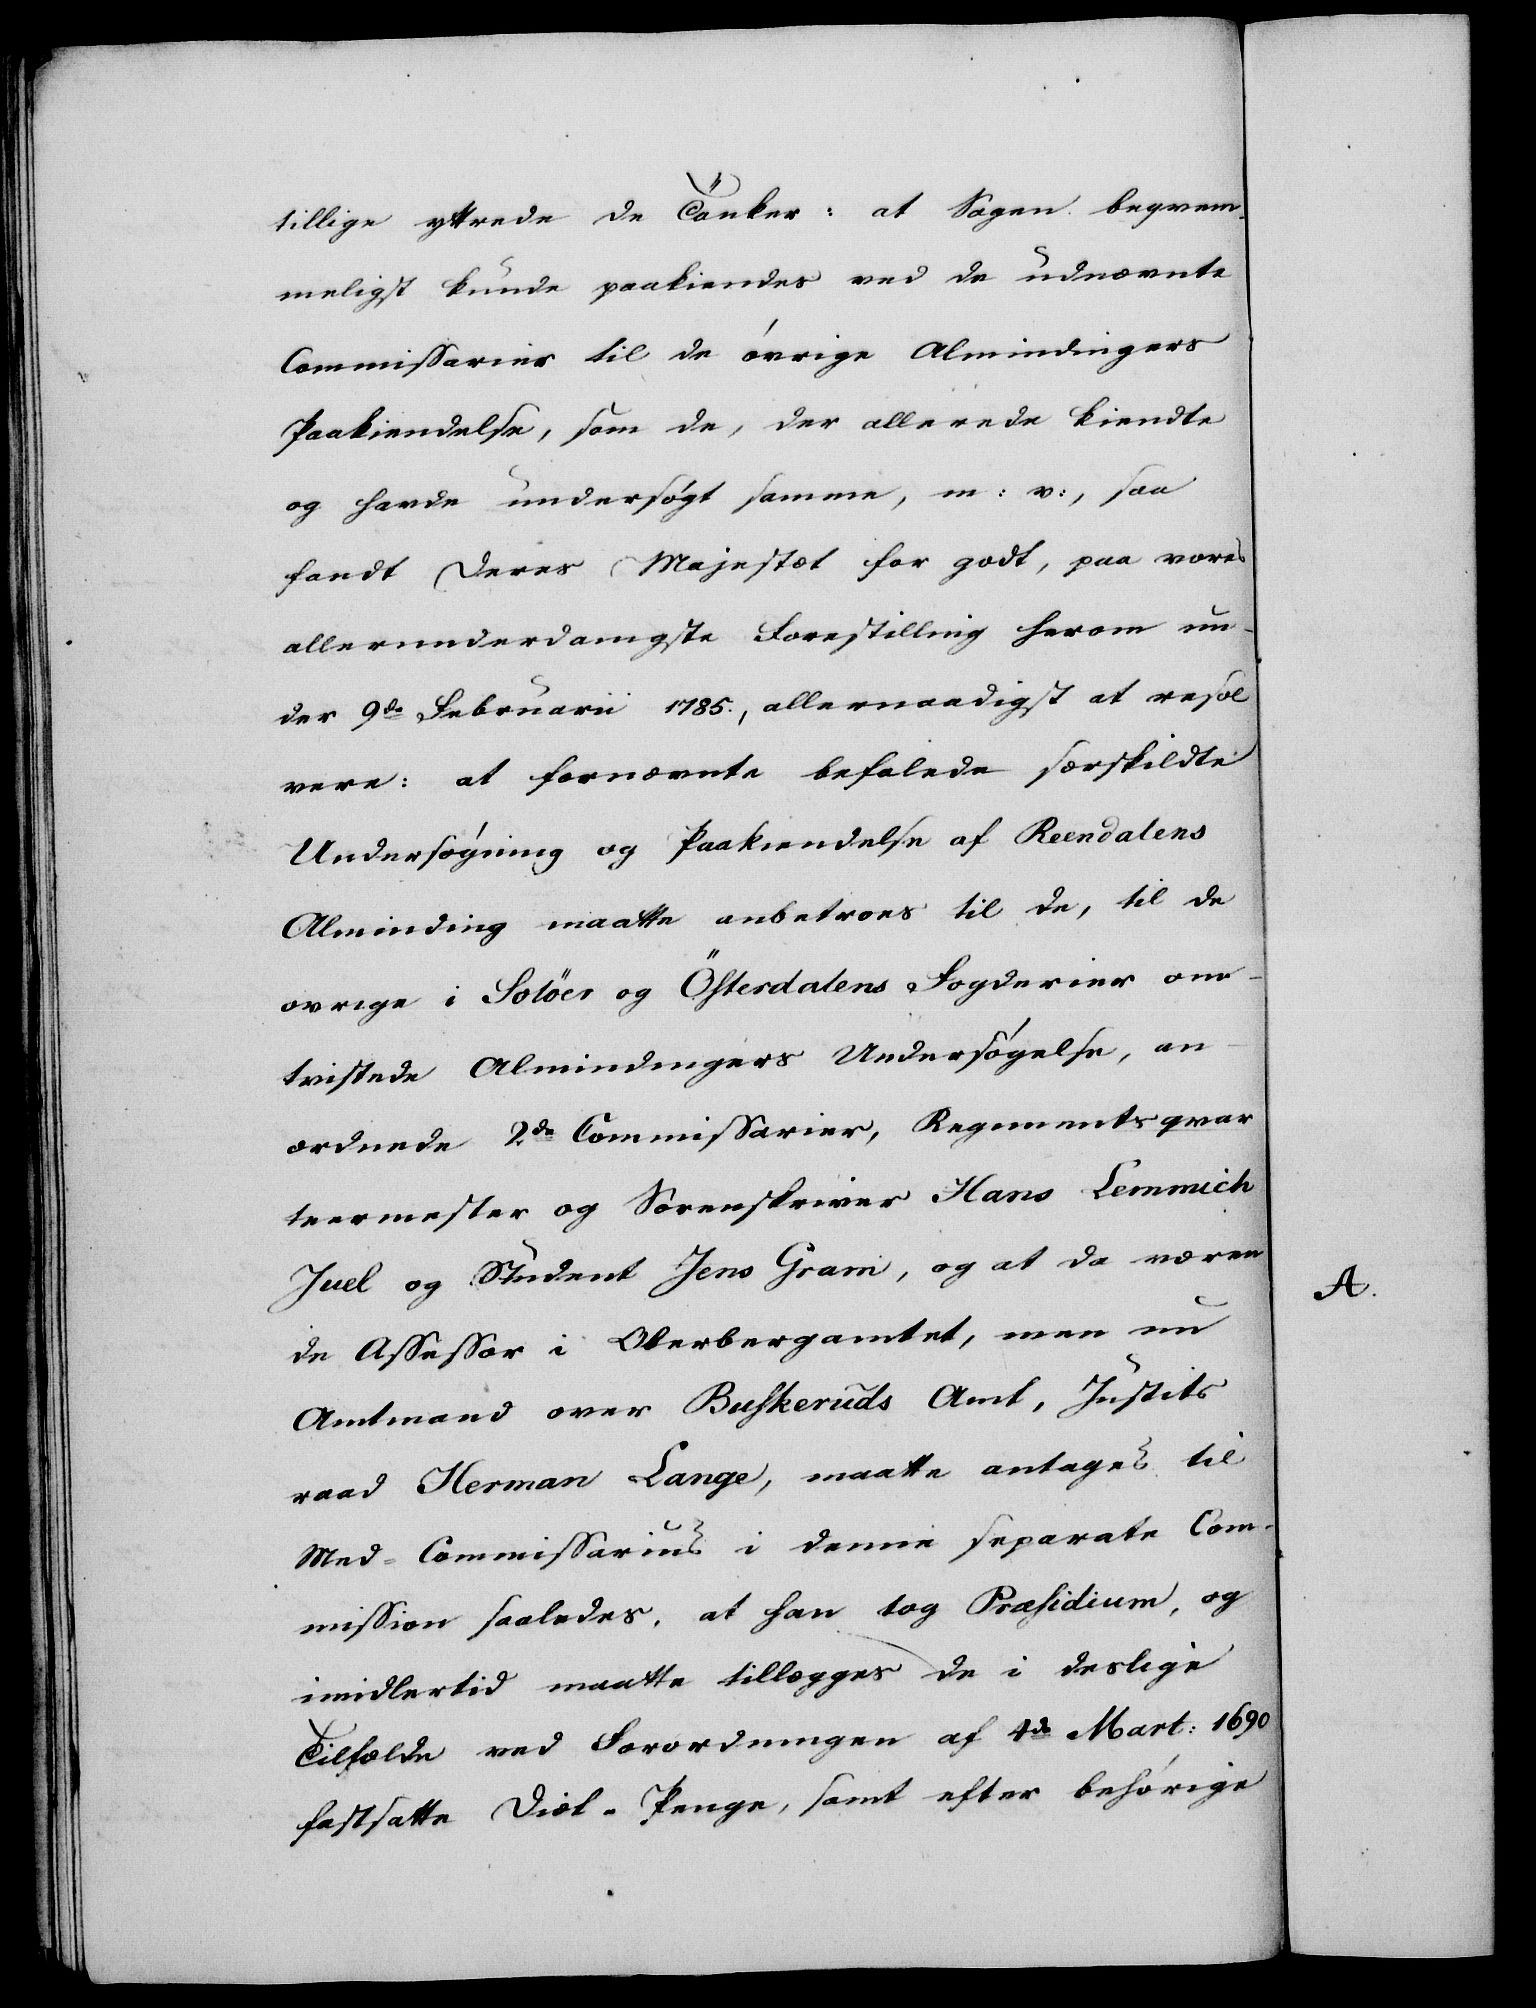 tillige yttrede de Tanker: at Sagen beqvem-
meligst kunde paakiendes ved de udnævnte
Commissarier til de övrige Almindingers
Paakiendelse, som de, der allerede kiendte
og havde undersögt samme, m: v:, saa
fandt Deres Majestæt for godt, paa vores
allerunderdanigste Forestilling herom un-
der 9de Februarii 1785., allernaadigst at resol
vere: at fornævnte befalede særskildte
Undersögning og Paakiendelse af Reendalens
Alminding maatte anbetroes til de, til de
övrige i Solöer og Österdalens Fogderier om-
tvistede Almindingers Undersögelse, an-
ordnede 2de Commissarier, Regimentsqvar
teermester og Sorenskriver Hans Lemmich
Juel og Student Jens Gram, og at da væren
de Assessor i Oberbergamtet, men nu
Amtmand over Buskeruds Amt, Justits
raad Herman Lange, maatte antages til
Med-Commissarius i denne separate Com-
mission saaledes, at han tog Præsidium, og
imidlertid maatte tillægges de i deslige
Tilfælde ved Forordningen af 4de Mart: 1690
fastsatte Diæt-Penge, samt efter behörige
A.